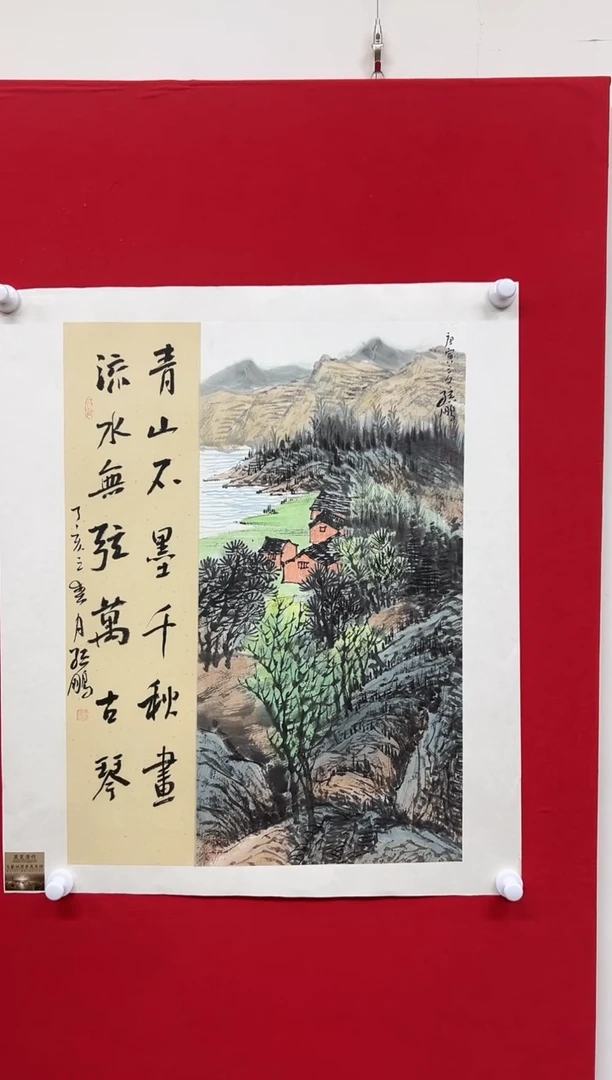 庚寅 鵬
青山不墨千秋畫
流水無弦萬古琴
丁亥 春月 鵬